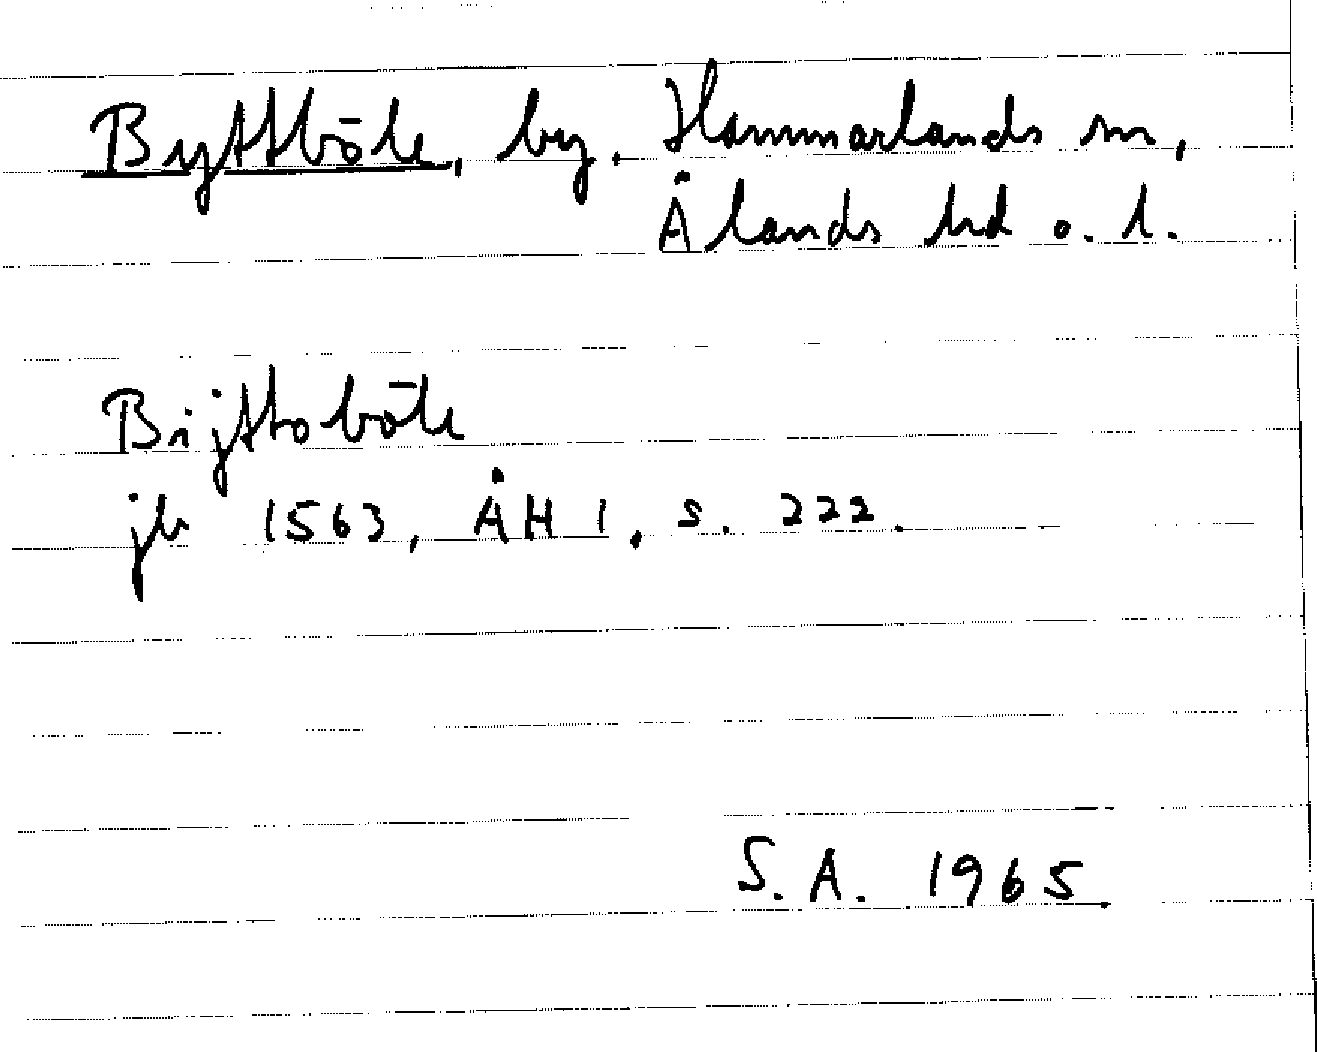 Byttböle, by, Hammarlands sn,
Ålands hd o. l.
Bijttoböle
jb 1563, ÅH 1, s. 222.
S. A. 1965.